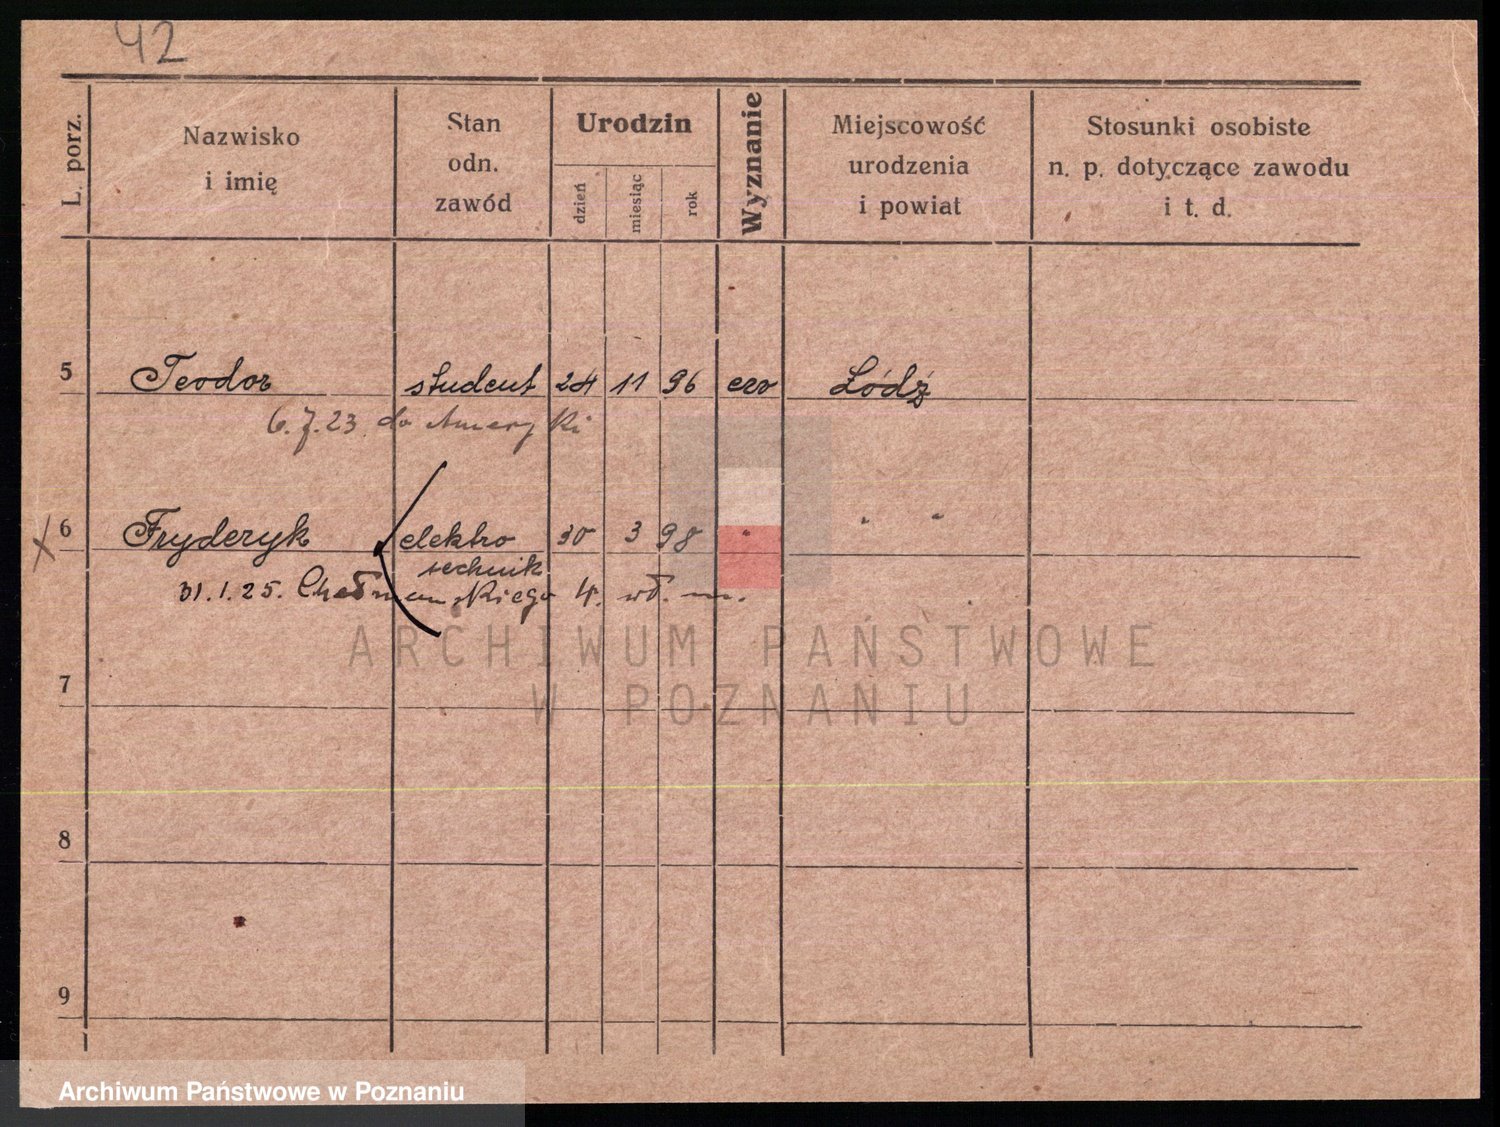 42
L. porz.
Nazwisko
i imię
Stan
odn.
zawód
Urodzin
dzień
miesiąc
rok
Wyznanie
Miejscowość
urodzenia
i powiat
Stosunki osobiste
n. p. dotyczące zawodu
i t. d.
5 Teodor student 24 11 96 Łódź
6.7.23 do Ameryki
x 6 Fryderyk elektro 30 3 98 " " "
technik
31.1.25. 4. wł. m.
ARCHIWUM PAŃSTWOWE
W POZNANIU
7
8
9
Archiwum Państwowe w Poznaniu